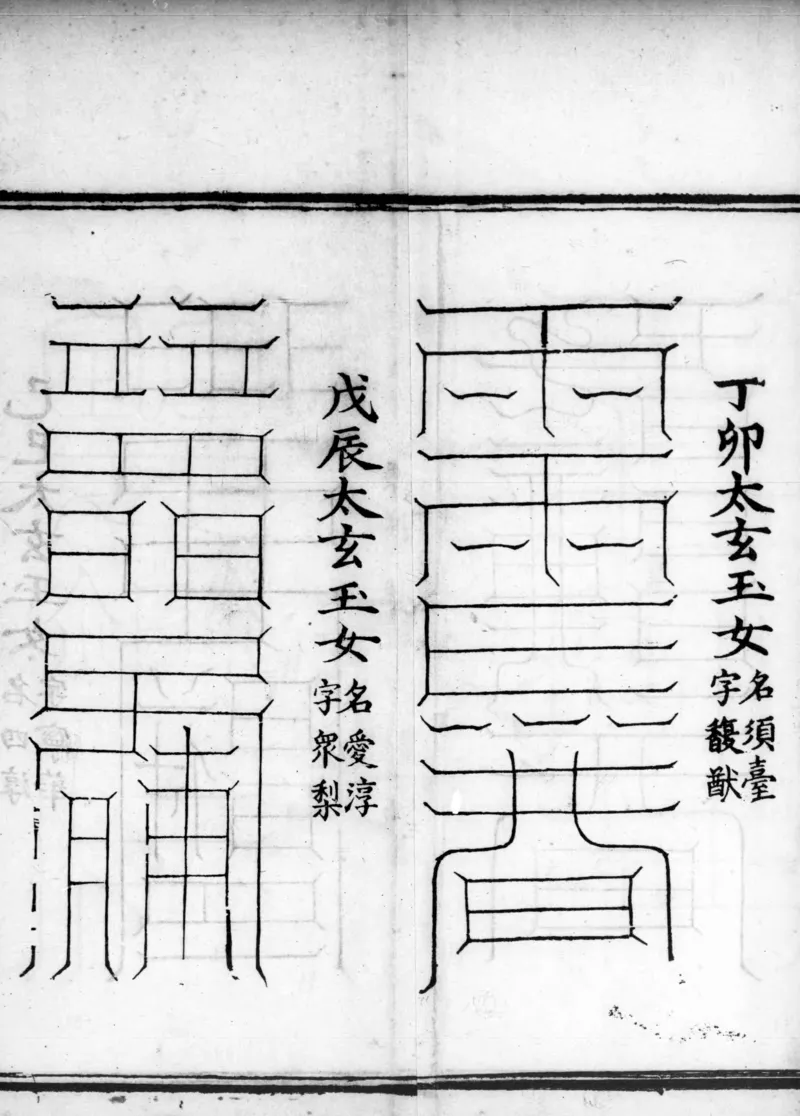 丁卯太玄玉女
名須臺
字馥猷
戊辰太玄玉女
名愛淳
字衆梨